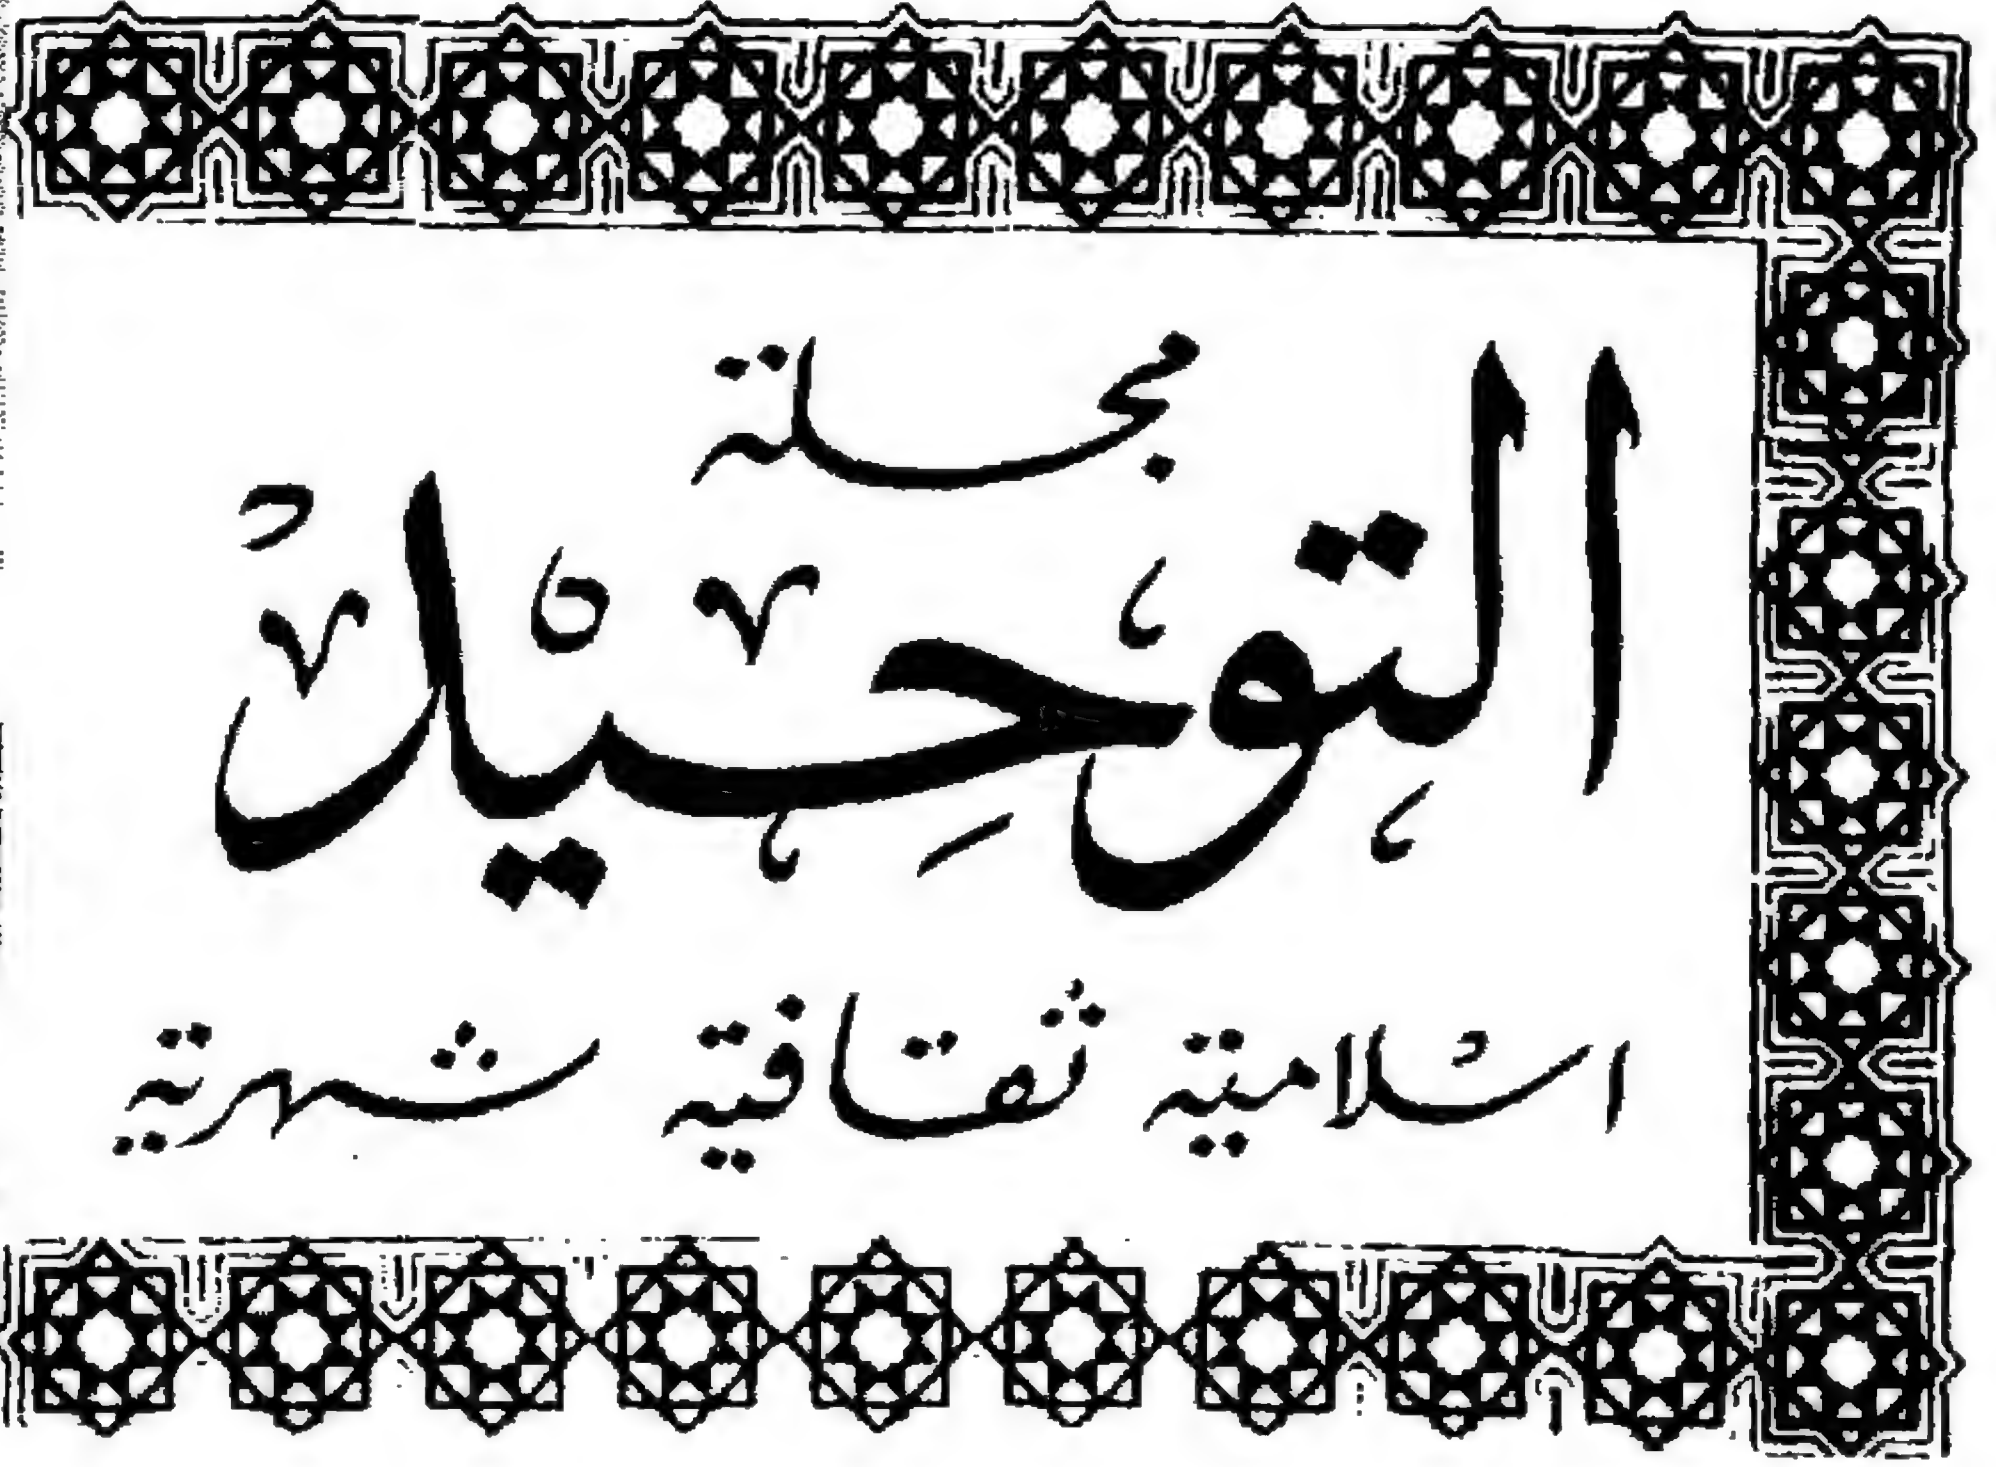 مجلة
التوحيد
اسلامية ثقافية شهرية